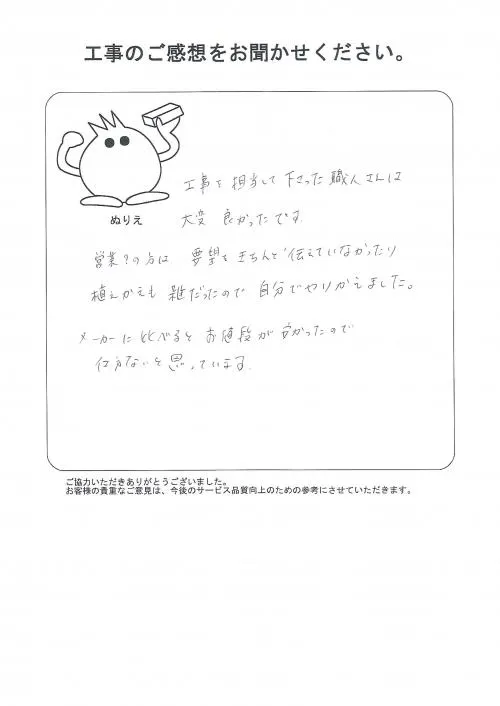 工事のご感想をお聞かせください。
ぬりえ
工事を担当して下さった職人さんは
大変良かったです。
営業?の方は、要望をきちんと伝えていなかったり
植えかえも雑だったので自分でやりかえました。
メーカーに比べるとお値段が安かったので
仕方ないと思っています。
ご協力いただきありがとうございました。
お客様の貴重なご意見は、今後のサービス品質向上のための参考にさせていただきます。